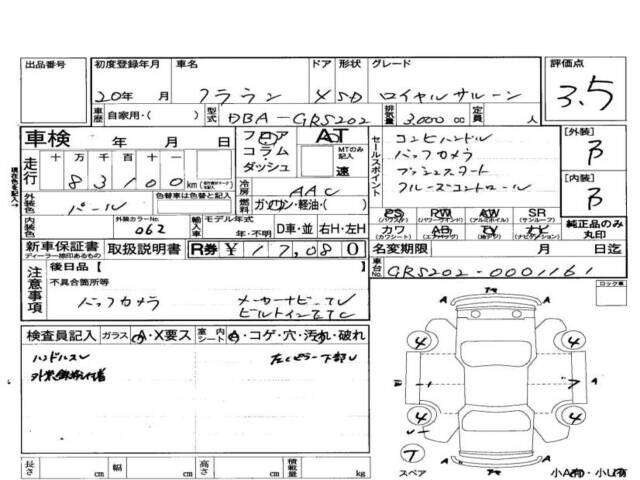 出品番号 初度登録年月 車名 ドア 形状 グレード 評価点
20年 月 クラウン 4 SD ロイヤルサルーン 3.5
車歴 自家用・( ) 型式 DBA-GRS202 排気量 3,000 cc 定員 人
車検 年 月 日 フロア コラム ダッシュ AT MTのみ記入 速
走行 十万 万 千 百 十 一
83100 km
冷房 AAC
外装色 パール 色替車は色替と記入 燃料 ガソリン・軽油・( )
内装色 外装カラーNo. 062 輸入車 モデル年式 年・不明 D車・並 右H・左H
現在色を記入→
セールスポイント
コンビハンドル
バックカメラ
プッシュスタート
クルーズコントロール
PS (パワステ) PW (パワーウインド) AW (アルミホイル) SR (サンルーフ)
カワ (カワシート) AB (エアバッグ) TV ナビ (ナビゲーション)
純正品のみ丸印
[外装] B
[内装] B
新車保証書 ディーラー捺印あるもの 取扱説明書 R券 ¥17,080
名変期限 月 日迄
車台No. GRS202-0001161
注意事項 後日品【
不具合箇所等
バックカメラ メーカーナビ-TV
ビルトインETC
検査員記入 ガラス A・X要ス 室内 シート A・コゲ・穴・汚れ・破れ
ハンドルスレ 左ミラー下部レ
長さ cm 幅 cm 高さ cm 積載量 kg
ロック車
A A
4 4
A
4 4
A A
T
スペア
小A有・小U有